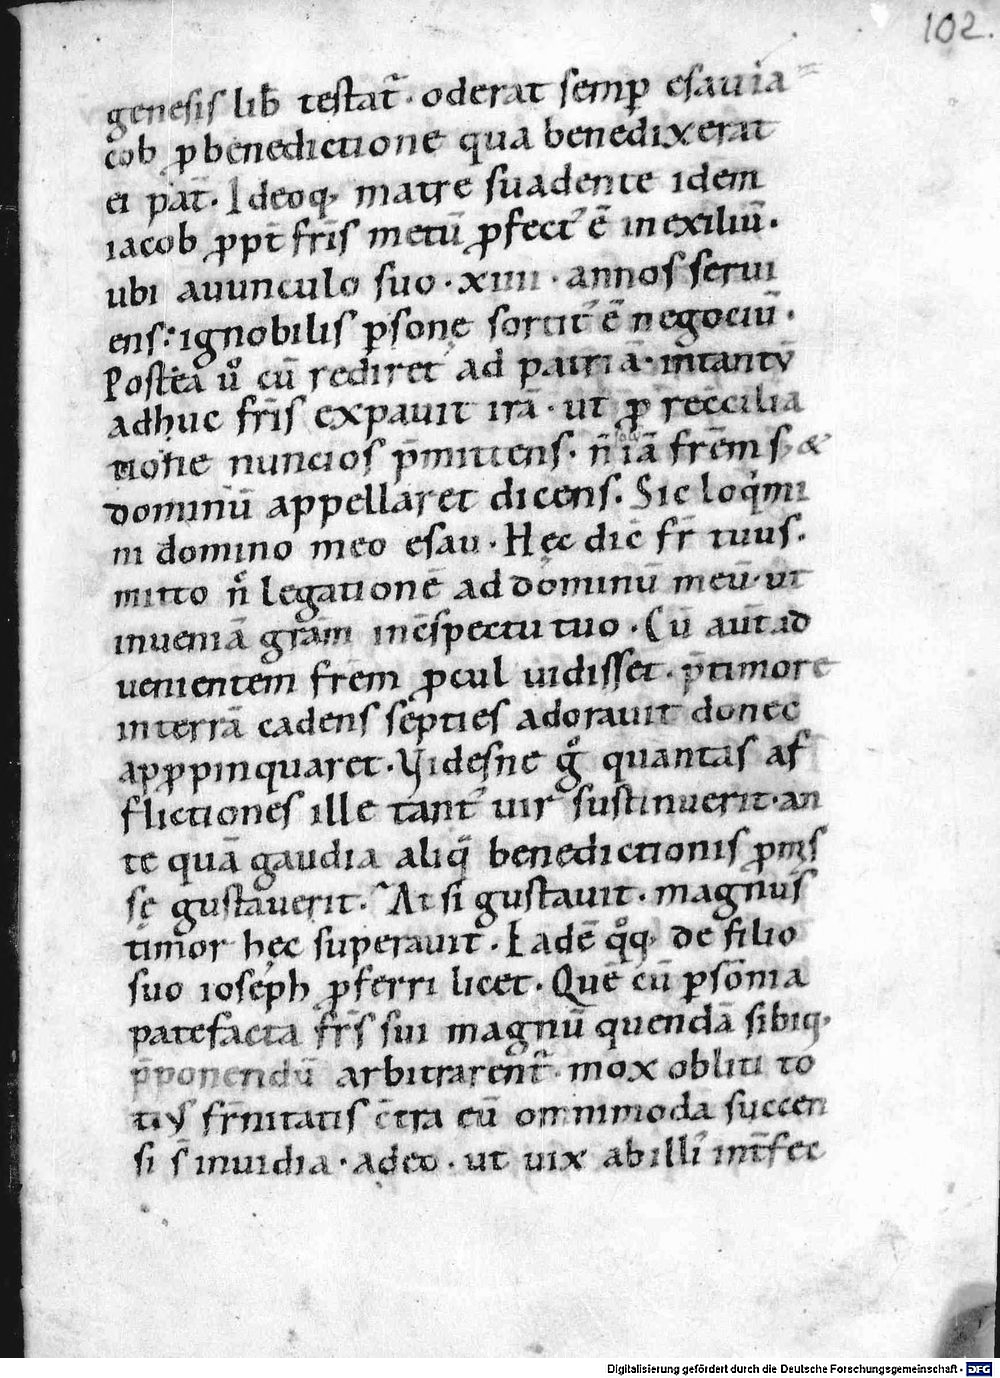 102.
genesis lib̄ testat᷑. oderat semꝑ esau ia
cob ꝓ benedictione qua benedixerat
ei pat̄. Ideoq; matre suadente idem
iacob ꝓpt̄ fr̄is metū ꝓfect᷒ ē in exiliū.
ubi auunculo suo. xiiii. annos serui
ens: ignobilis ꝑsonę sortit᷒ ē negociū.
Postea uͦ cū rediret ad patriā. intantū
adhuc fr̄is expauit irā. ut ꝓ rec̄cilia
tione nuncios p̄mittens. n̄ solū iā fr̄em s; &
dominū appellaret dicens. Sic loq̇mi
ni domino meo esau. Hęc dic̄ fr̄ tuus.
mitto n̄c legationē ad dominū meū. ut
inueniā gr̄am inc̄spectu tuo. Cū aut̄ ad
uenientem fr̄em ꝓcul uidisset. p̄timore
in terrā cadens septies adorauit donec
apꝓpinquaret. Videsne gͦ quantas af
flictiones ille tant᷒ uir sustinuerit. an
te quā gaudia aliq̄ benedictionis ꝓmis
sę gustauerit. At si gustauit. magnus
timor hęc superauit. Eadē qͦq; de filio
suo ioseph ꝓferri licet. Quē cū ꝑ somnia
patefacta fr̄s sui magnū quendā sibiq;
p̄ponendū arbitrarent᷑. mox obliti to
tiꝰ fr̄nitatis c̄tra eū omnimoda succen
si s̄ inuidia. adeo. ut uix ab illi᷒ int̄fec
Digitalisierung gefördert durch die Deutsche Forschungsgemeinschaft - DFG